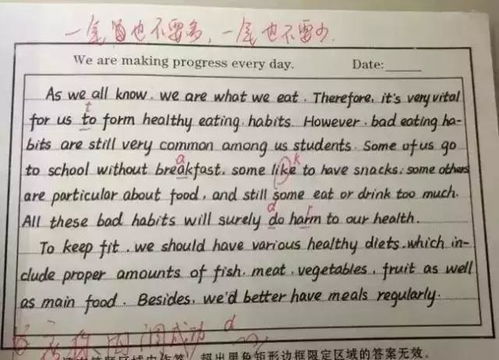 一尾画也不要多，一尾也不要少
We are making progress every day. Date:
As we all know, we are what we eat. Therefore, it's very vital
t
for us to form healthy eating habits. However, bad eating ha-
bits are still very common among us students. Some of us go
a k
to school without breakfast, some like to have snacks, some others
are particular about food, and still some eat or drink too much.
d r
All these bad habits will surely do harm to our health.
To keep fit, we should have various healthy diets, which in-
clude proper amounts of fish, meat, vegetables, fruit as well
as main food. Besides, we'd better have meals regularly.
成功 d
超出黑色矩形边框限定区域的答案无效。